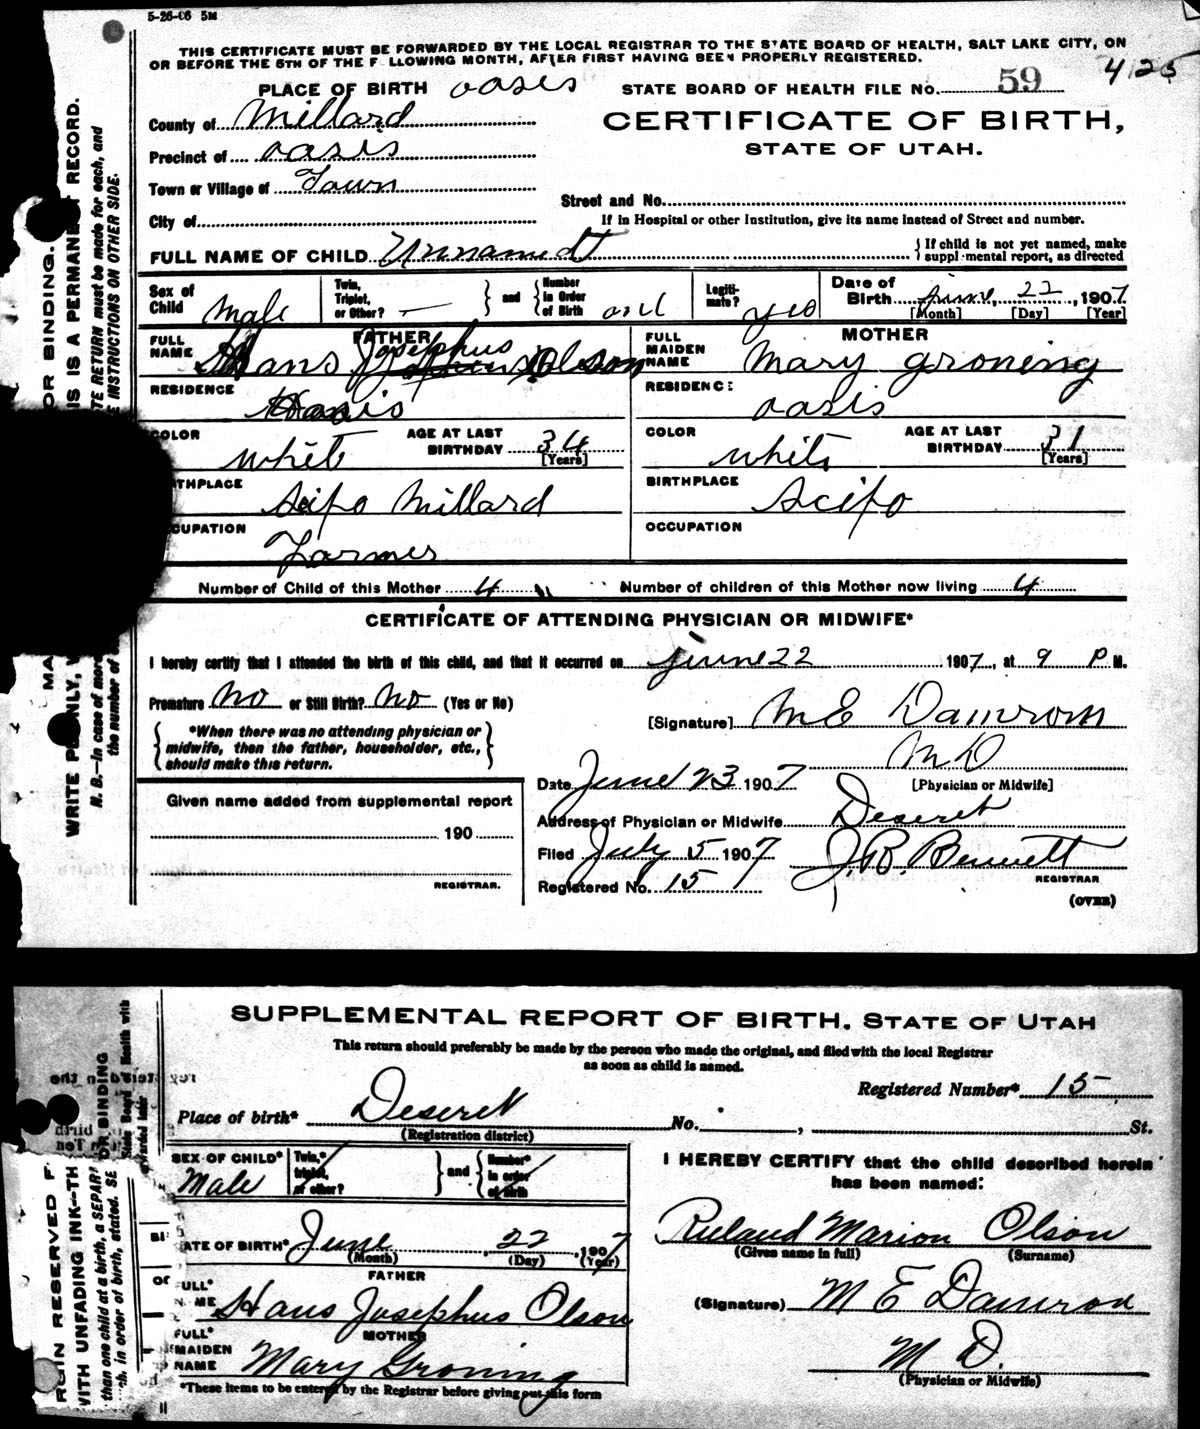 5-26-06 5M
THIS CERTIFICATE MUST BE FORWARDED BY THE LOCAL REGISTRAR TO THE STATE BOARD OF HEALTH, SALT LAKE CITY, ON
OR BEFORE THE 5TH OF THE F LLOWING MONTH, AFTER FIRST HAVING BEEN PROPERLY REGISTERED.
4 25
PLACE OF BIRTH oasis
STATE BOARD OF HEALTH FILE NO. 59
County of Millard
CERTIFICATE OF BIRTH,
Precinct of oasis
STATE OF UTAH.
Town or Village of Town
Street and No.
City of
If in Hospital or other Institution, give its name instead of Street and number.
FULL NAME OF CHILD Unnamed
{ If child is not yet named, make
suppl mental report, as directed
Sex of Child Male
Twin, Triplet, or Other? —
and
Number in Order of Birth
Legiti- mate? yes
Date of Birth June, 22, 1907
[Month] [Day] [Year]
FATHER
FULL NAME Hans Josephus Olson
MOTHER
FULL MAIDEN NAME Mary Groning
RESIDENCE Oasis
RESIDENC: oasis
COLOR white
AGE AT LAST BIRTHDAY 34
[Years]
COLOR white
AGE AT LAST BIRTHDAY 31
[Years]
THPLACE Scipo Millard
BIRTHPLACE Scipo
CUPATION Farmer
OCCUPATION
Number of Child of this Mother 4
Number of children of this Mother now living 4
CERTIFICATE OF ATTENDING PHYSICIAN OR MIDWIFE*
I hereby certify that I attended the birth of this child, and that it occurred on June 22 1907, at 9 P M.
Premature No or Still Birth? No (Yes or No)
[Signature] M E Damron
*When there was no attending physician or
midwife, then the father, householder, etc.,
should make this return.
M D
[Physician or Midwife]
Date June 23 1907
Given name added from supplemental report
Address of Physician or Midwife Deseret
190
Filed July 5 1907 J. B. Bennett
REGISTRAR
REGISTRAR.
Registered No. 15
(OVER)
OR BINDING.
IS IS A PERMANENT RECORD.
TE RETURN must be made for each, and
E INSTRUCTIONS ON OTHER SIDE.
MA
WRITE P NLY, W
N. B.—In case of more
the number of
SUPPLEMENTAL REPORT OF BIRTH. STATE OF UTAH
This return should preferably be made by the person who made the original, and filed with the local Registrar
as soon as child is named.
Registered Number* 15
Place of birth* Deseret No. , St.
(Registration district)
SEX OF CHILD* Male
Twin,* triplet, or other?
and
Number* in order of birth
I HEREBY CERTIFY that the child described herein
has been named:
ATE OF BIRTH* June, 22, 1907
(Month) (Day) (Year)
Ruland Marion Olson
(Given name in full) (Surname)
FATHER
ULL* ME Hans Josephus Olson
(Signature) M E Damron
MOTHER
FULL* MAIDEN NAME Mary Groning
M D.
(Physician or Midwife)
*These items to be entered by the Registrar before giving out this form
RGIN RESERVED F OR BINDING
WITH UNFADING INK—TH
than one child at a birth, a SEPAR
ch, in order of birth, stated. SE